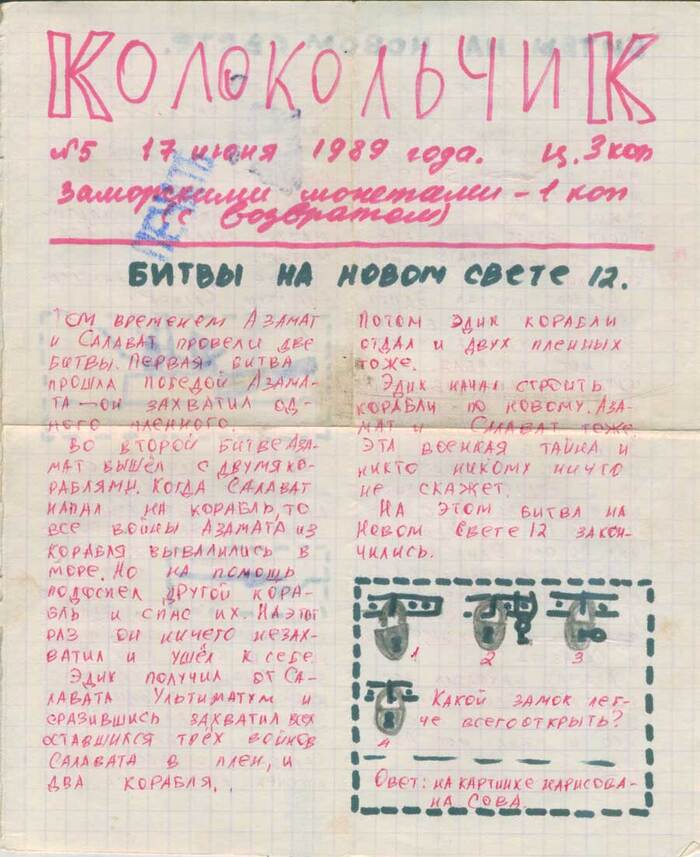 КОЛОКОЛЬЧИК
№5 17 июня 1989 года. Ц. 3 коп
Заморскими монетами – 1 коп
(с возвратом)
БИТВЫ НА НОВОМ СВЕТЕ 12.
Тем временем Азамат
и Салават провели две
битвы. Первая битва
прошла победой Азама-
та — он захватил од-
ного пленного.
Во второй битве Аза-
мат вышел с двумя ко-
раблями. Когда Салават
напал на корабль, то
все войны Азамата из
корабля вывалились в
море. Но на помощь
подоспел другой кора-
бль и спас их. На этот
раз он ничего незах-
ватил и ушёл к себе.
Эдик получил от Са-
лавата Ультиматум и
сразившись захватил всех
оставшихся трёх войнов
Салавата в плен, и
два корабля.
Потом Эдик корабли
отдал и двух пленных
тоже.
Эдик начал строить
корабли по новому. Аза-
мат и Салават тоже.
Эта военная тайна и
никто никому ничто
не скажет.
На этом битва на
Новом Свете 12 закон-
чились.
1 2 3
Какой замок лег-
че всего открыть?
4
Ответ: на картинке нарисова-
на сова.